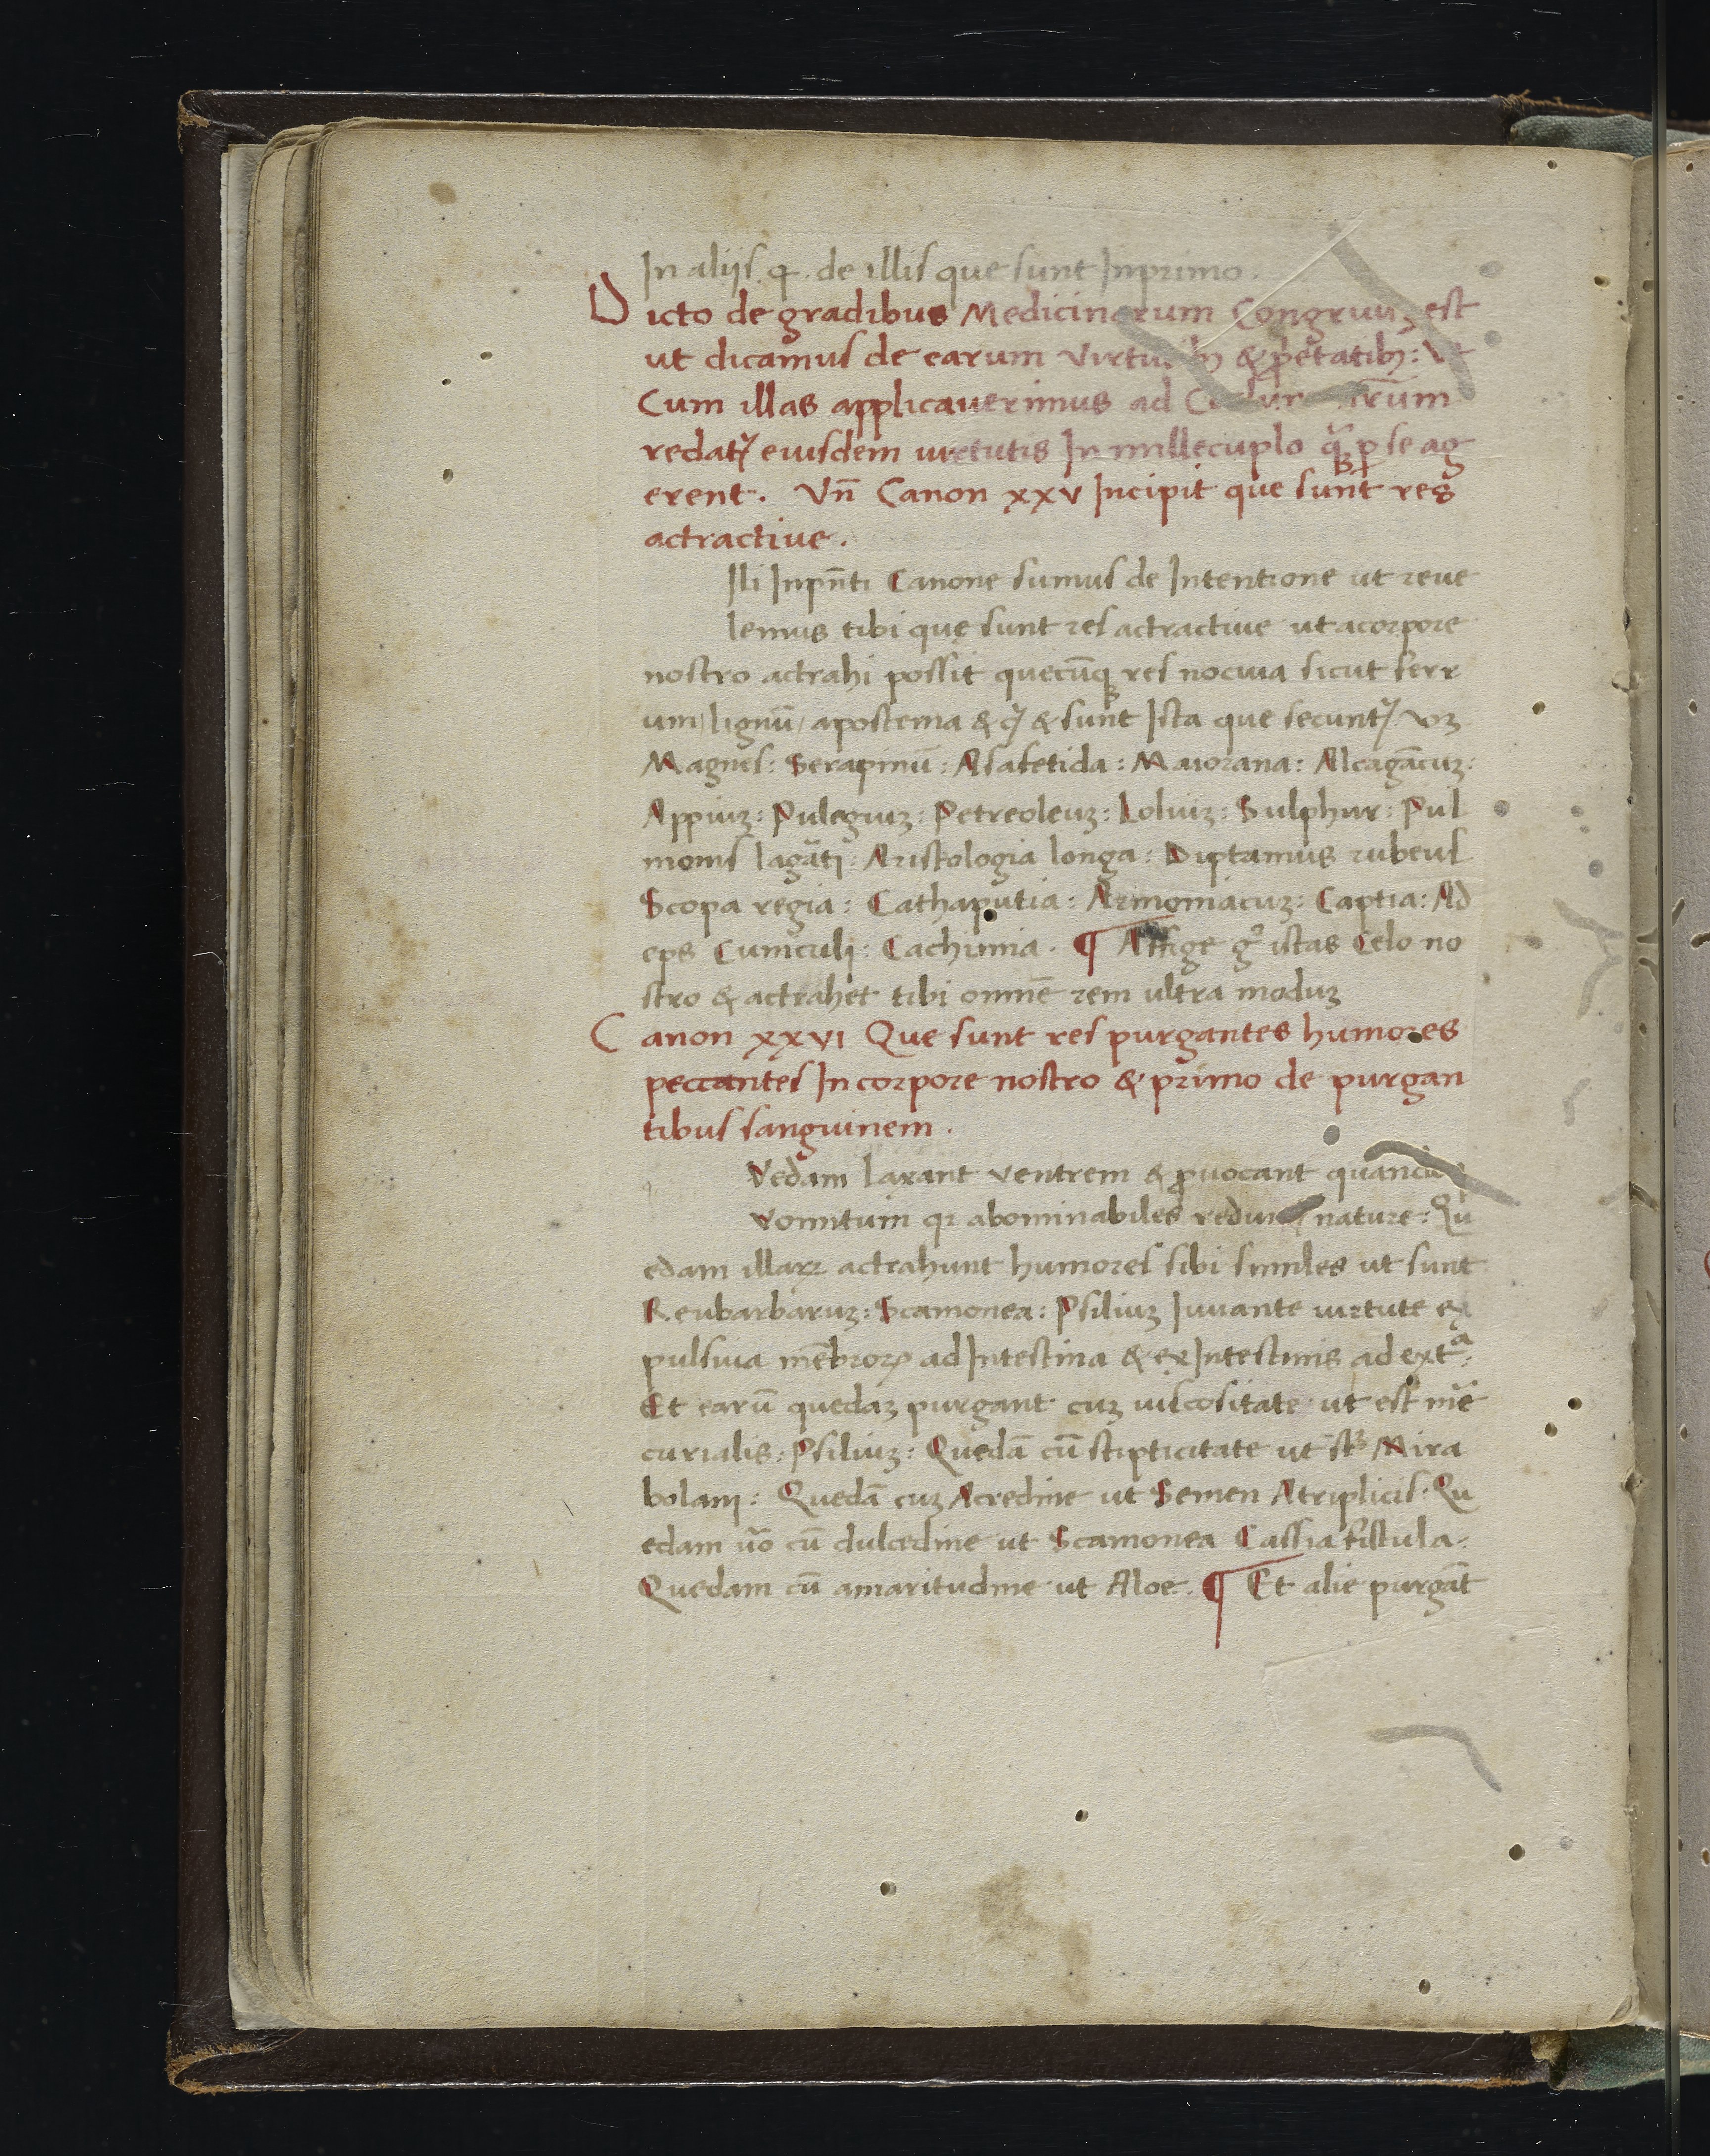 In aliis q̄. de illis que sunt Inprimo.
Dicto de gradibus Medicinarum Congruuꝫ est
ut dicamus de earum & ꝓpetatibꝫ:
Cum illas applicauerimus ad
redatꝭ eiusdem uretutis In millecuplo qᷓꝫ ꝑ se ag
erent. Vn̄ Canon xxv Incipit que sunt res
actractiue.
Ili Inpn̄ti Canone sumus de Intentione ut reue
lemus tibi que sunt res actractiue ut acorpore
nostro actrahi possit quecūqꝫ res nociua sicut ferr
um/lignū/apostema & cꝭ & sunt Ista que secuntꝭ vꝫ
Magnes: Serapinū: Asafetida: Maiorana: Alcagācuꝫ:
Appiuꝫ: Pulegiuꝫ: Petreoleuꝫ: Loliuꝫ: Sulphur: Pul
monis lagāti: Aristologia longa: Diptamus rubeus
Scopa regia: Cathaputia: Armoniacuꝫ: Captia: Ad
eps Cuniculi: Cachimia. ¶ Affige gͦ istas Celo no
stro & actrahet tibi omnē rem ultra moduꝫ
Canon xxvi Que sunt res purgantes humores
peccantes In corpore nostro & primo de purgan
tibus sanguinem.
Vedam laxant ventrem & ꝓuocant
vomitum qꝛ abominabiles nature: Qu
edam illarꝝ actrahunt humores sibi similes ut sunt
Reubarbaruꝫ: Scamonea: Psiliuꝫ Iuuante uirtute ex
pulsiua mēbrorꝝ ad Intestina & ex Intestinis ad extᵃ:
Et earū quedaꝫ purgant cuꝫ uiscositate ut est m̄e
curialis: Psiliuꝫ: Quedā cū stipticitate ut stꝫ Mira
bolani: Quedā cuꝫ Acredine ut Semen Atriplicis: Qu
edam u̇o cū dulcedine ut Scamonea Cassia fistula.
Quedam cū amaritudine ut Aloe. ¶ Et alie purgāt